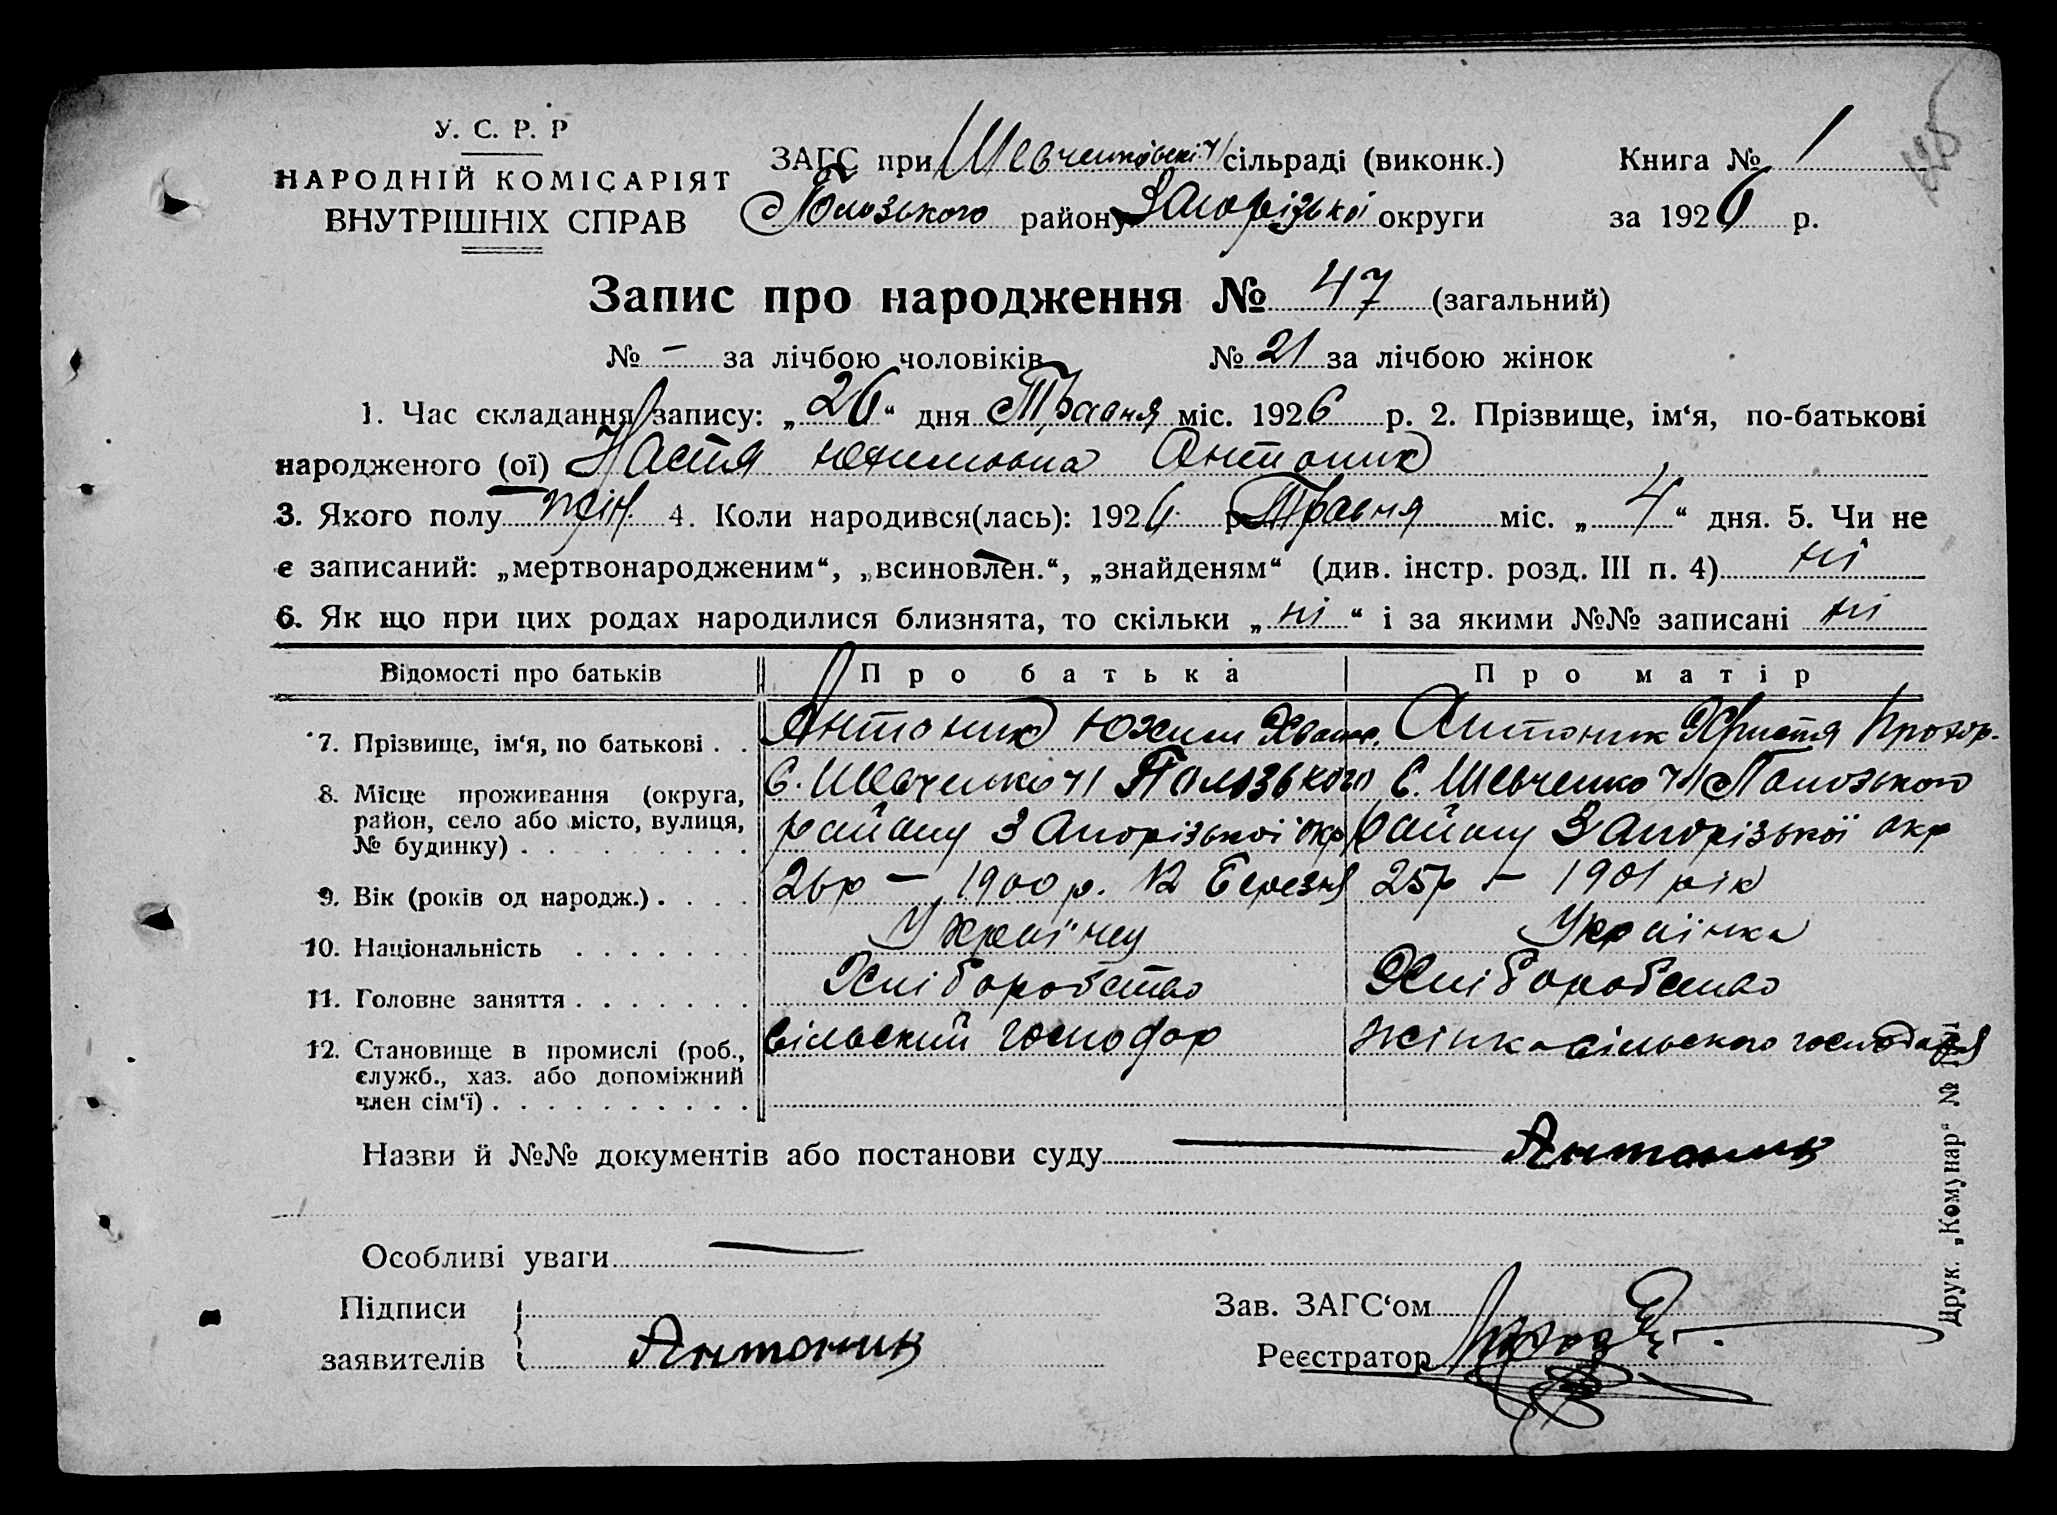 У. С. Р. Р
НАРОДНІЙ КОМІСАРІЯТ
ВНУТРІШНІХ СПРАВ
ЗАГС при Шевченківські ч/ сільраді (виконк.)
Полозького району Запорізької округи
Книга № 1
за 1926 р.
Запис про народження № 47 (загальний)
№ - за лічбою чоловіків № 21 за лічбою жінок
1. Час складання запису: „26“ дня Травня міс. 1926 р. 2. Прізвище, ім‘я, по-батькові
народженого (ої) Настя Юхимовна Антоник
3. Якого полу жін. 4. Коли народився(лась): 1926 р. Травня міс. „4“ дня. 5. Чи не
є записаний: „мертвонародженим“, „всиновлен.“, „знайденям“ (див. інстр. розд. III п. 4) ні
6. Як що при цих родах народилися близнята, то скільки „ні“ і за якими №№ записані ні
Відомості про батьків Про батька Про матір
7. Прізвище, ім‘я, по батькові . . Антоник Юхим Антоник Христя Прохор.
8. Місце проживання (округа, район, село або місто, вулиця, № будинку) . . . . . . . . . С. Шевченко ч1 Полозького С. Шевченко ч1 Полозького
району Запорізької окр району Запорізької окр
9. Вік (років од народж.) . . . . 26р – 1900р. 12 Березня 25р – 1901 рік
10. Національність . . . . . . . Українец Українка
11. Головне заняття . . . . . . . Хліборобство Хліборобство
12. Становище в промислі (роб., служб., хаз. або допоміжний член сім‘ї) . . . . . . . . . . сільский господар жінка сільского господаря
Назви й №№ документів або постанови суду — Антоник
Особливі уваги —
Підписи
заявителів Антоник
Зав. ЗАГС‘ом
Реєстратор
Друк. „Комунар“ №